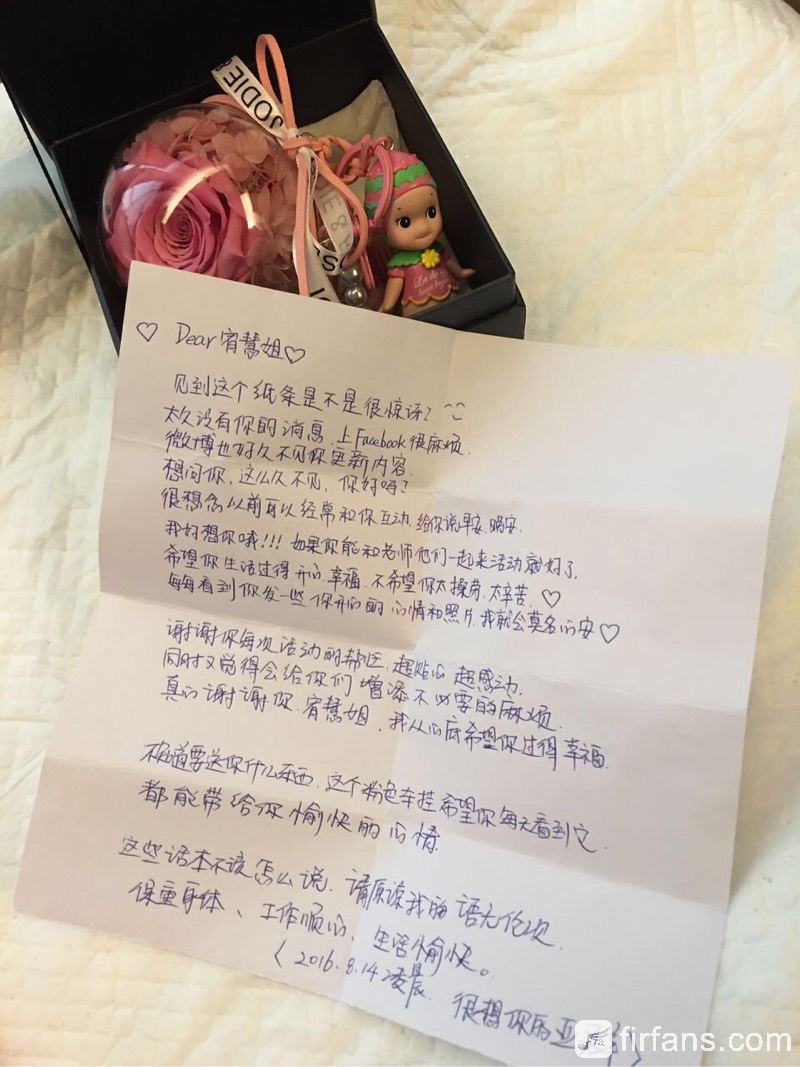 JODIE &
♡ Dear 宥慧姐♡
见到这个纸条是不是很惊讶? ^^
太久没有你的消息.上Facebook很麻烦.
微博也好久不见你更新内容.
想问你,这么久不见,你好吗?
很想念以前可以经常和你互动.给你说早安.晚安.
我好想你哦!!! 如果你能和老师他们一起来活动就好了.
希望你生活过得开心.幸福.不希望你太操劳.太辛苦.♡
每每看到你发一些你开心的心情和照片.我就会莫名心安♡
谢谢你每次活动的帮忙.超贴心 超感动.
同时又觉得会给你们增添不必要的麻烦.
真心谢谢你.宥慧姐,我从心底希望你过得幸福.
不知道要送你什么东西.这个粉色车挂希望你每天看到它.
都能带给你愉快的心情.
这些话本不该怎么说.请原谅我的语无伦次.
保重身体、工作顺心、生活愉快。
(2016.8.14凌晨.
很想你的亚
firfans.com